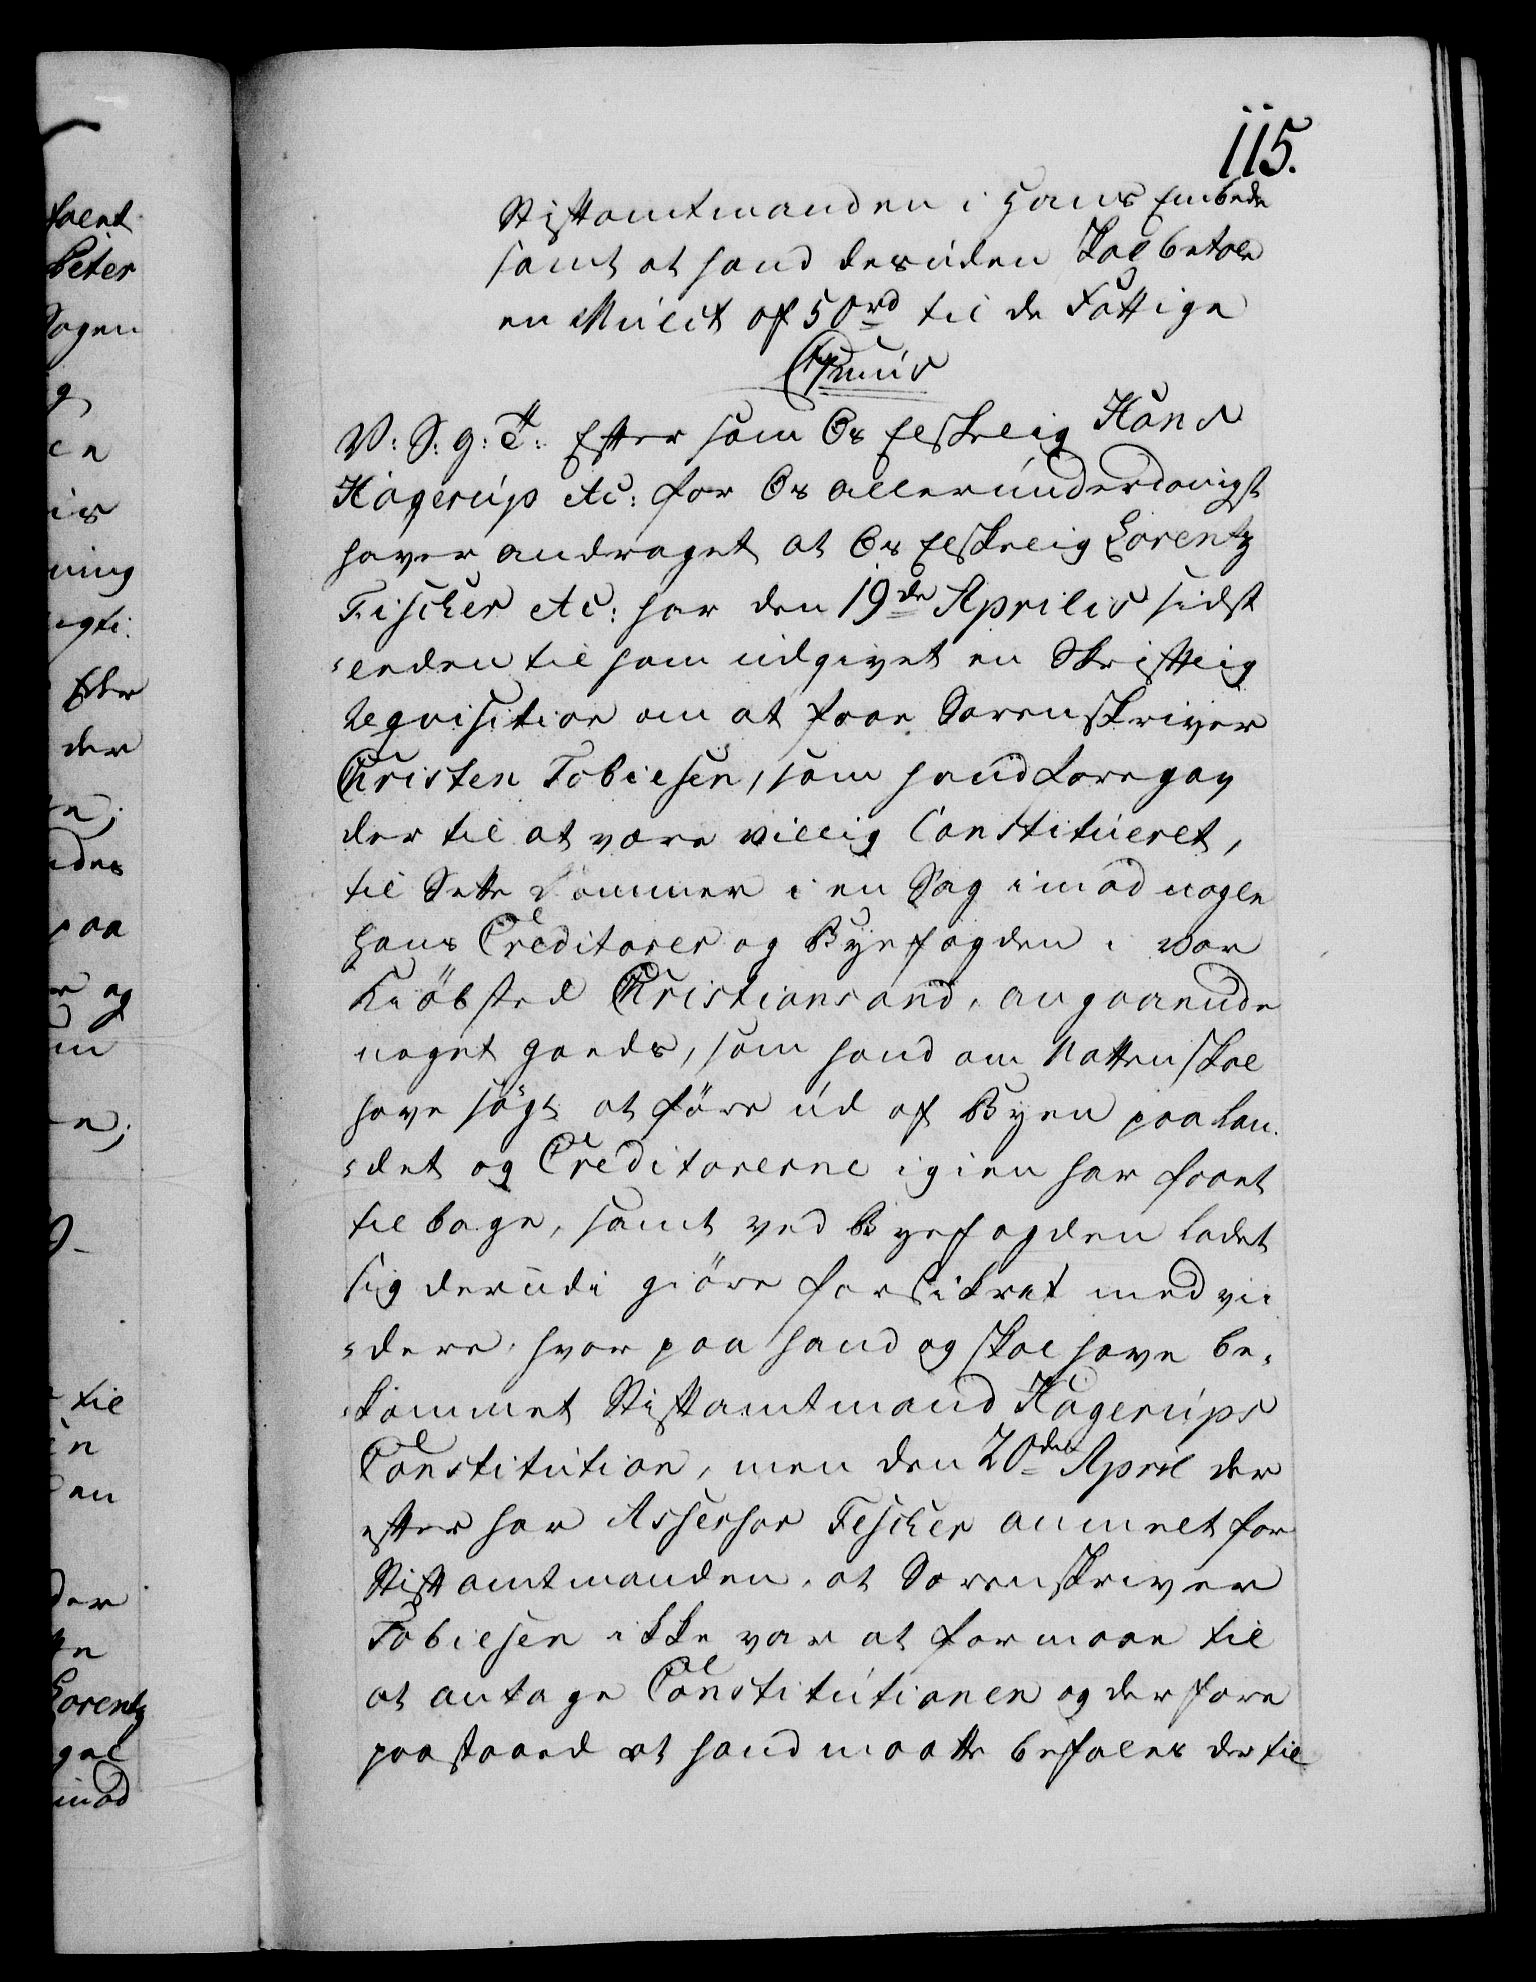 115.
Stiftamtmanden i Hans Embede
samt at hand desuden skal betale
en Mulct af 50 rd til de Fattige
V: S: g: T: Eftersom Os Elskelig Hans
Hagerup etc: for Os allerunderdanigst
haver andraget at Os Elskelig Lorentz
Fischer etc: har den 19de Aprilis sidst
leeden til ham udgivet en Skriftlig
Reqvisition om at faae Sorenskriver
Christen Tobiesen, som hand foregav
der til at være villig Constitueret,
til Sætte Dommer i en Sag imod nogle
hans Creditorer og Byefogden i vor
Kiöbsted Christiansand, angaaende
noget Goeds, som hand om Natten skal
have sögt at före ud af Byen paa Lan-
det og Creditorerne igien har faaet
tilbage, samt ved Byefogden ladet
sig derudi giöre forsikret med vii-
dere, hvor paa hand og skal have be-
kommet Stiftamtmand Hagerups
Constitution, men den 20de April der
efter har Assessor Fischer anmelt for
Stiftamtmanden, at Sorenskriver
Tobiesen ikke var at formaae til
at antage Constitutionen og derfore
paastaaed at hand maatte befales der til